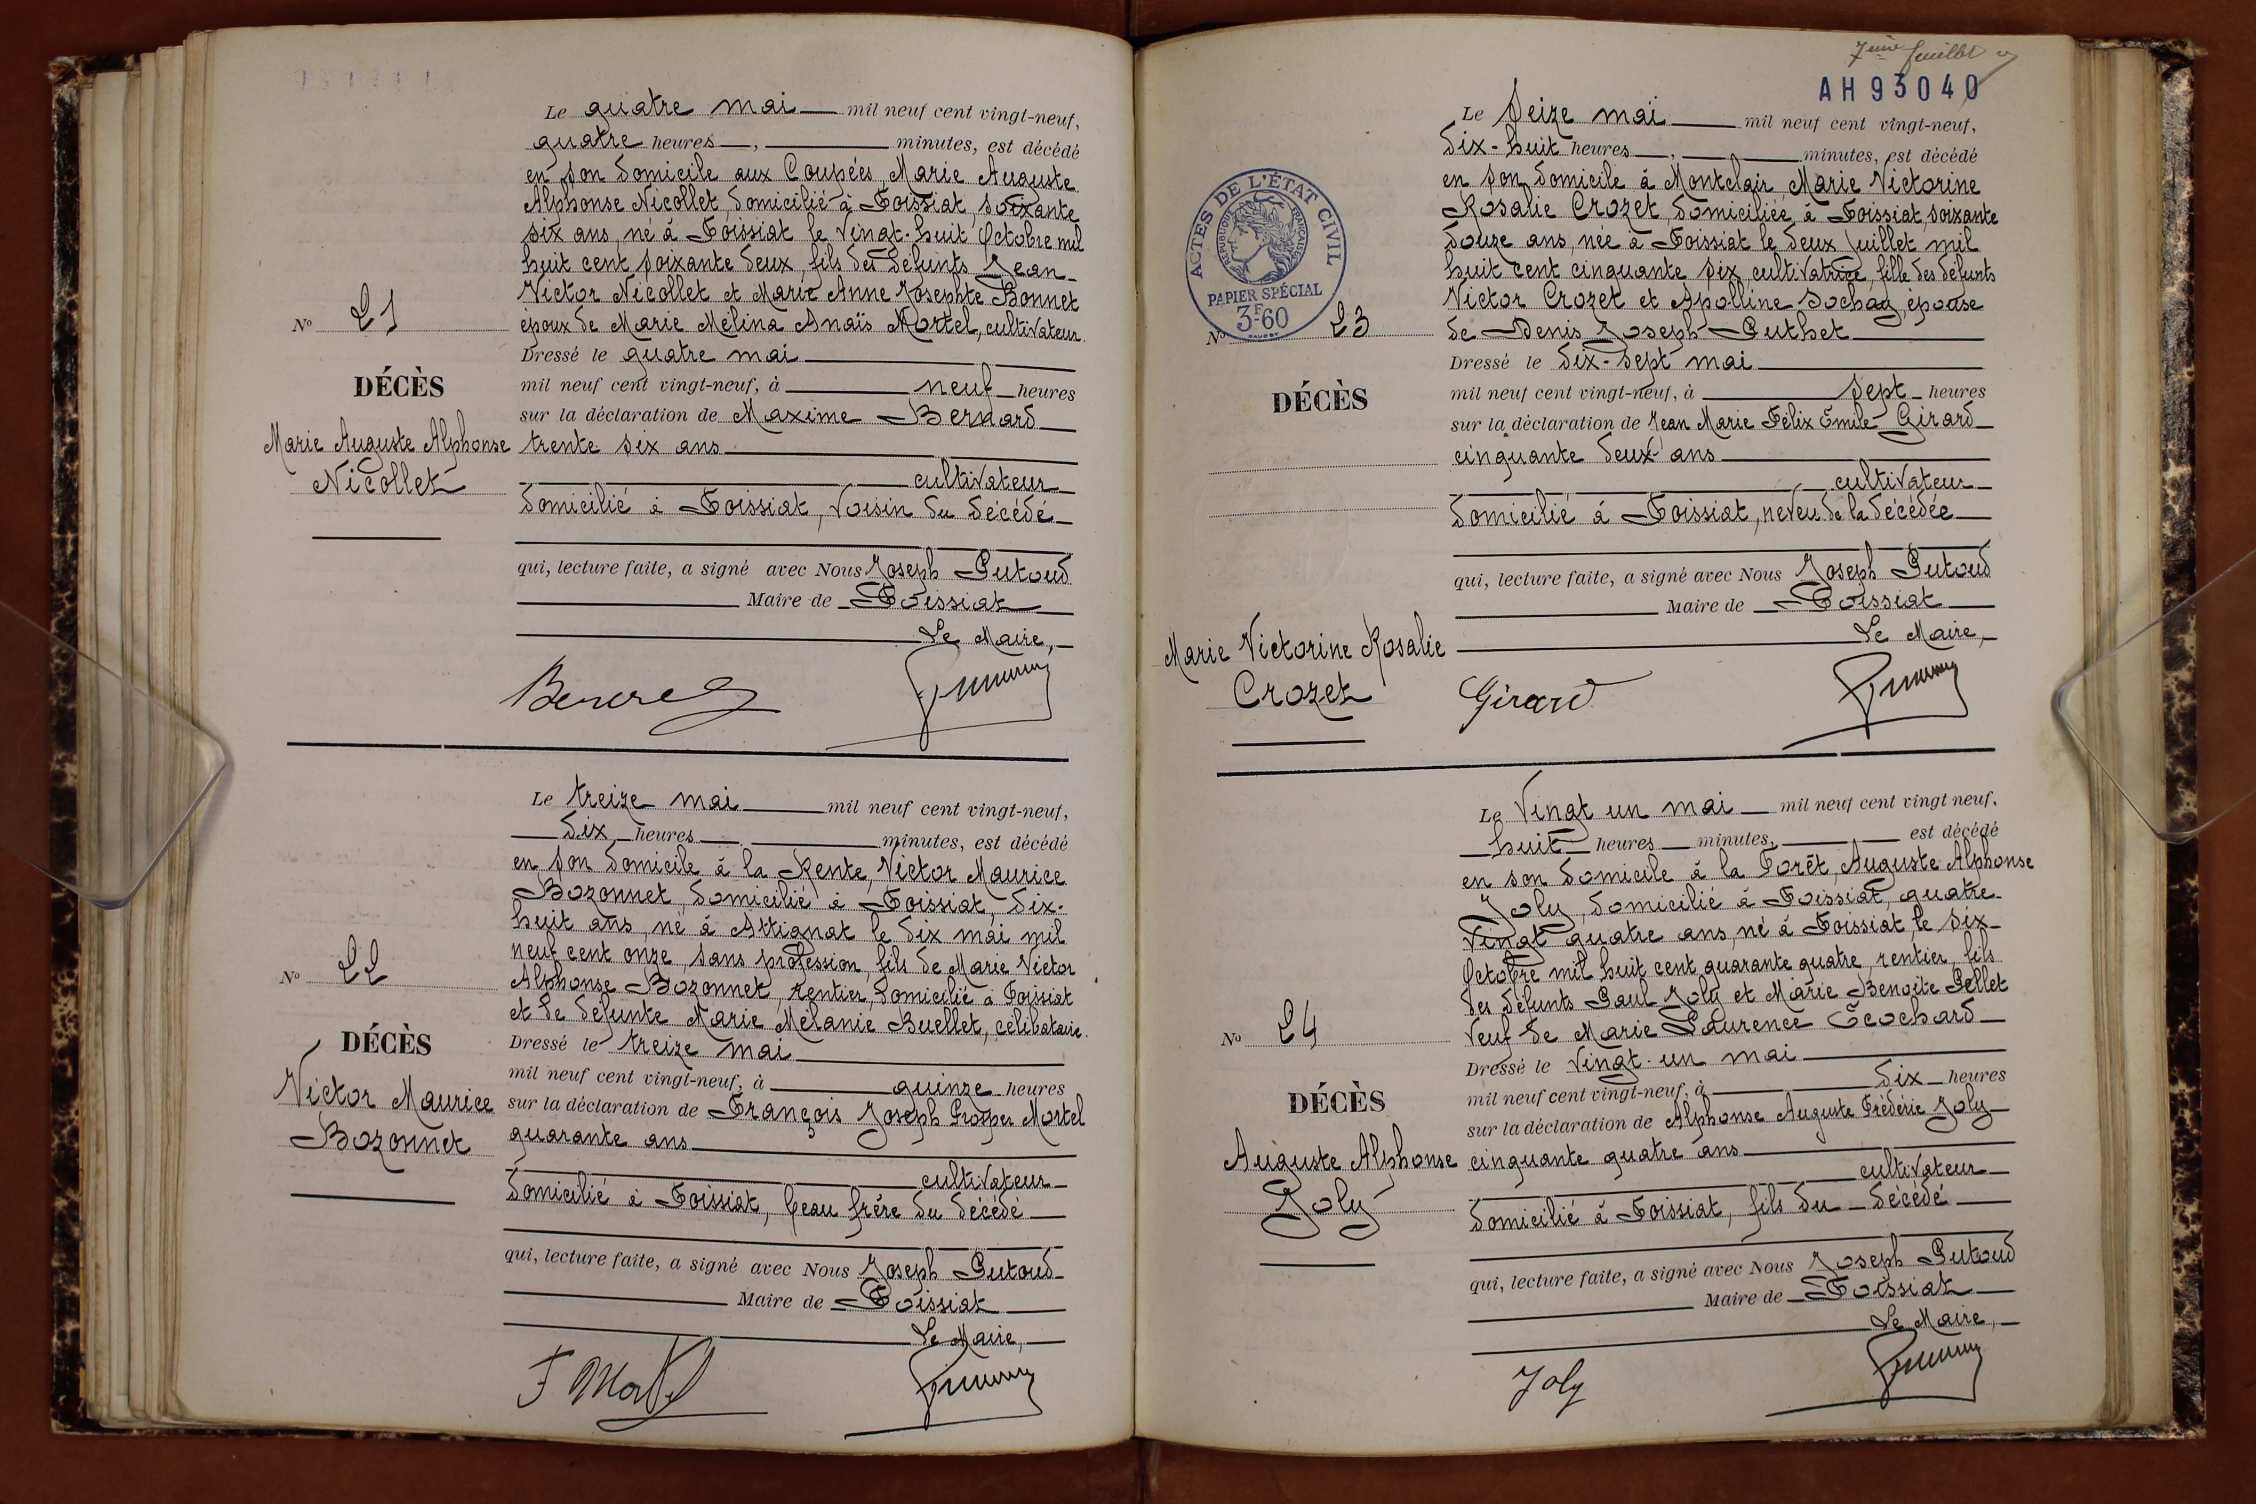 Le quatre mai mil neuf cent vingt-neuf,
quatre heures, minutes, est décédé
en son domicile aux Coupées, Marie Auguste
Alphonse Nicollet, domicilié à Foissiat, soixante
six ans, né à Foissiat le vingt-huit Octobre mil
huit cent soixante deux, fils des défunts Jean
Victor Nicollet et Marie Anne Josephte Bonnet
époux de Marie Mélina Anaïs Mortel, cultivateur
No 21
Dressé le quatre mai
DÉCÈS
mil neuf cent vingt-neuf, à neuf heures
sur la déclaration de Maxime Bernard
Marie Auguste Alphonse
Nicollet
trente six ans
cultivateur
domicilié à Foissiat, voisin du décédé
qui, lecture faite, a signé avec Nous Joseph Putoud
Maire de Foissiat
Le Maire,
Le treize mai mil neuf cent vingt-neuf,
dix heures minutes, est décédé
en son domicile à la Rente, Victor Maurice
Bozonnet, domicilié à Foissiat, dix-
huit ans, né à Attignat le dix mai mil
neuf cent onze, sans profession, fils de Marie Victor
Alphonse Bozonnet, rentier, domicilié à Foissiat
et de défunte Marie Mélanie Buellet, célibataire.
No 22
Dressé le treize mai
DÉCÈS
mil neuf cent vingt-neuf, à quinze heures
Victor Maurice
Bozonnet
sur la déclaration de François Joseph Prosper Mortel
quarante ans
cultivateur
domicilié à Foissiat, beau frère du décédé
qui, lecture faite, a signé avec Nous Joseph Putoud
Maire de Foissiat
Le Maire,
F Mortel
7ème feuillet
AH93040
Le Seize mai mil neuf cent vingt-neuf,
dix-huit heures, minutes, est décédé
en son domicile à Montclair Marie Victorine
Rosalie Crozet, domiciliée à Foissiat, soixante
douze ans, née à Foissiat le deux Juillet mil
huit cent cinquante six cultivatrice, fille des défunts
Victor Crozet et Apolline Sochay, épouse
de Denis Joseph Puthet
ACTES DE L'ÉTAT CIVIL
RÉPUBLIQUE FRANÇAISE
PAPIER SPÉCIAL
3F60
No 23
Dressé le dix-sept mai
DÉCÈS
mil neuf cent vingt-neuf, à sept heures
sur la déclaration de Jean Marie Félix Émile Girard
cinquante deux ans
cultivateur
domicilié à Foissiat, neveu de la décédée
qui, lecture faite, a signé avec Nous Joseph Putoud
Maire de Foissiat
Le Maire,
Marie Victorine Rosalie
Crozet
Girard
Le Vingt un mai mil neuf cent vingt neuf,
huit heures minutes, est décédé
en son domicile à la Forêt, Auguste Alphonse
Joly, domicilié à Foissiat, quatre
vingt quatre ans, né à Foissiat le six
Octobre mil huit cent quarante quatre, rentier, fils
des défunts Paul Joly et Marie Benoîte Pellet
veuf de Marie Laurence Écochard
No 24
Dressé le vingt-un mai
DÉCÈS
mil neuf cent vingt-neuf, à dix heures
sur la déclaration de Alphonse Auguste Frédéric Joly
Auguste Alphonse
Joly
cinquante quatre ans
cultivateur
domicilié à Foissiat, fils du décédé
qui, lecture faite, a signé avec Nous Joseph Putoud
Maire de Foissiat
Le Maire,
Joly